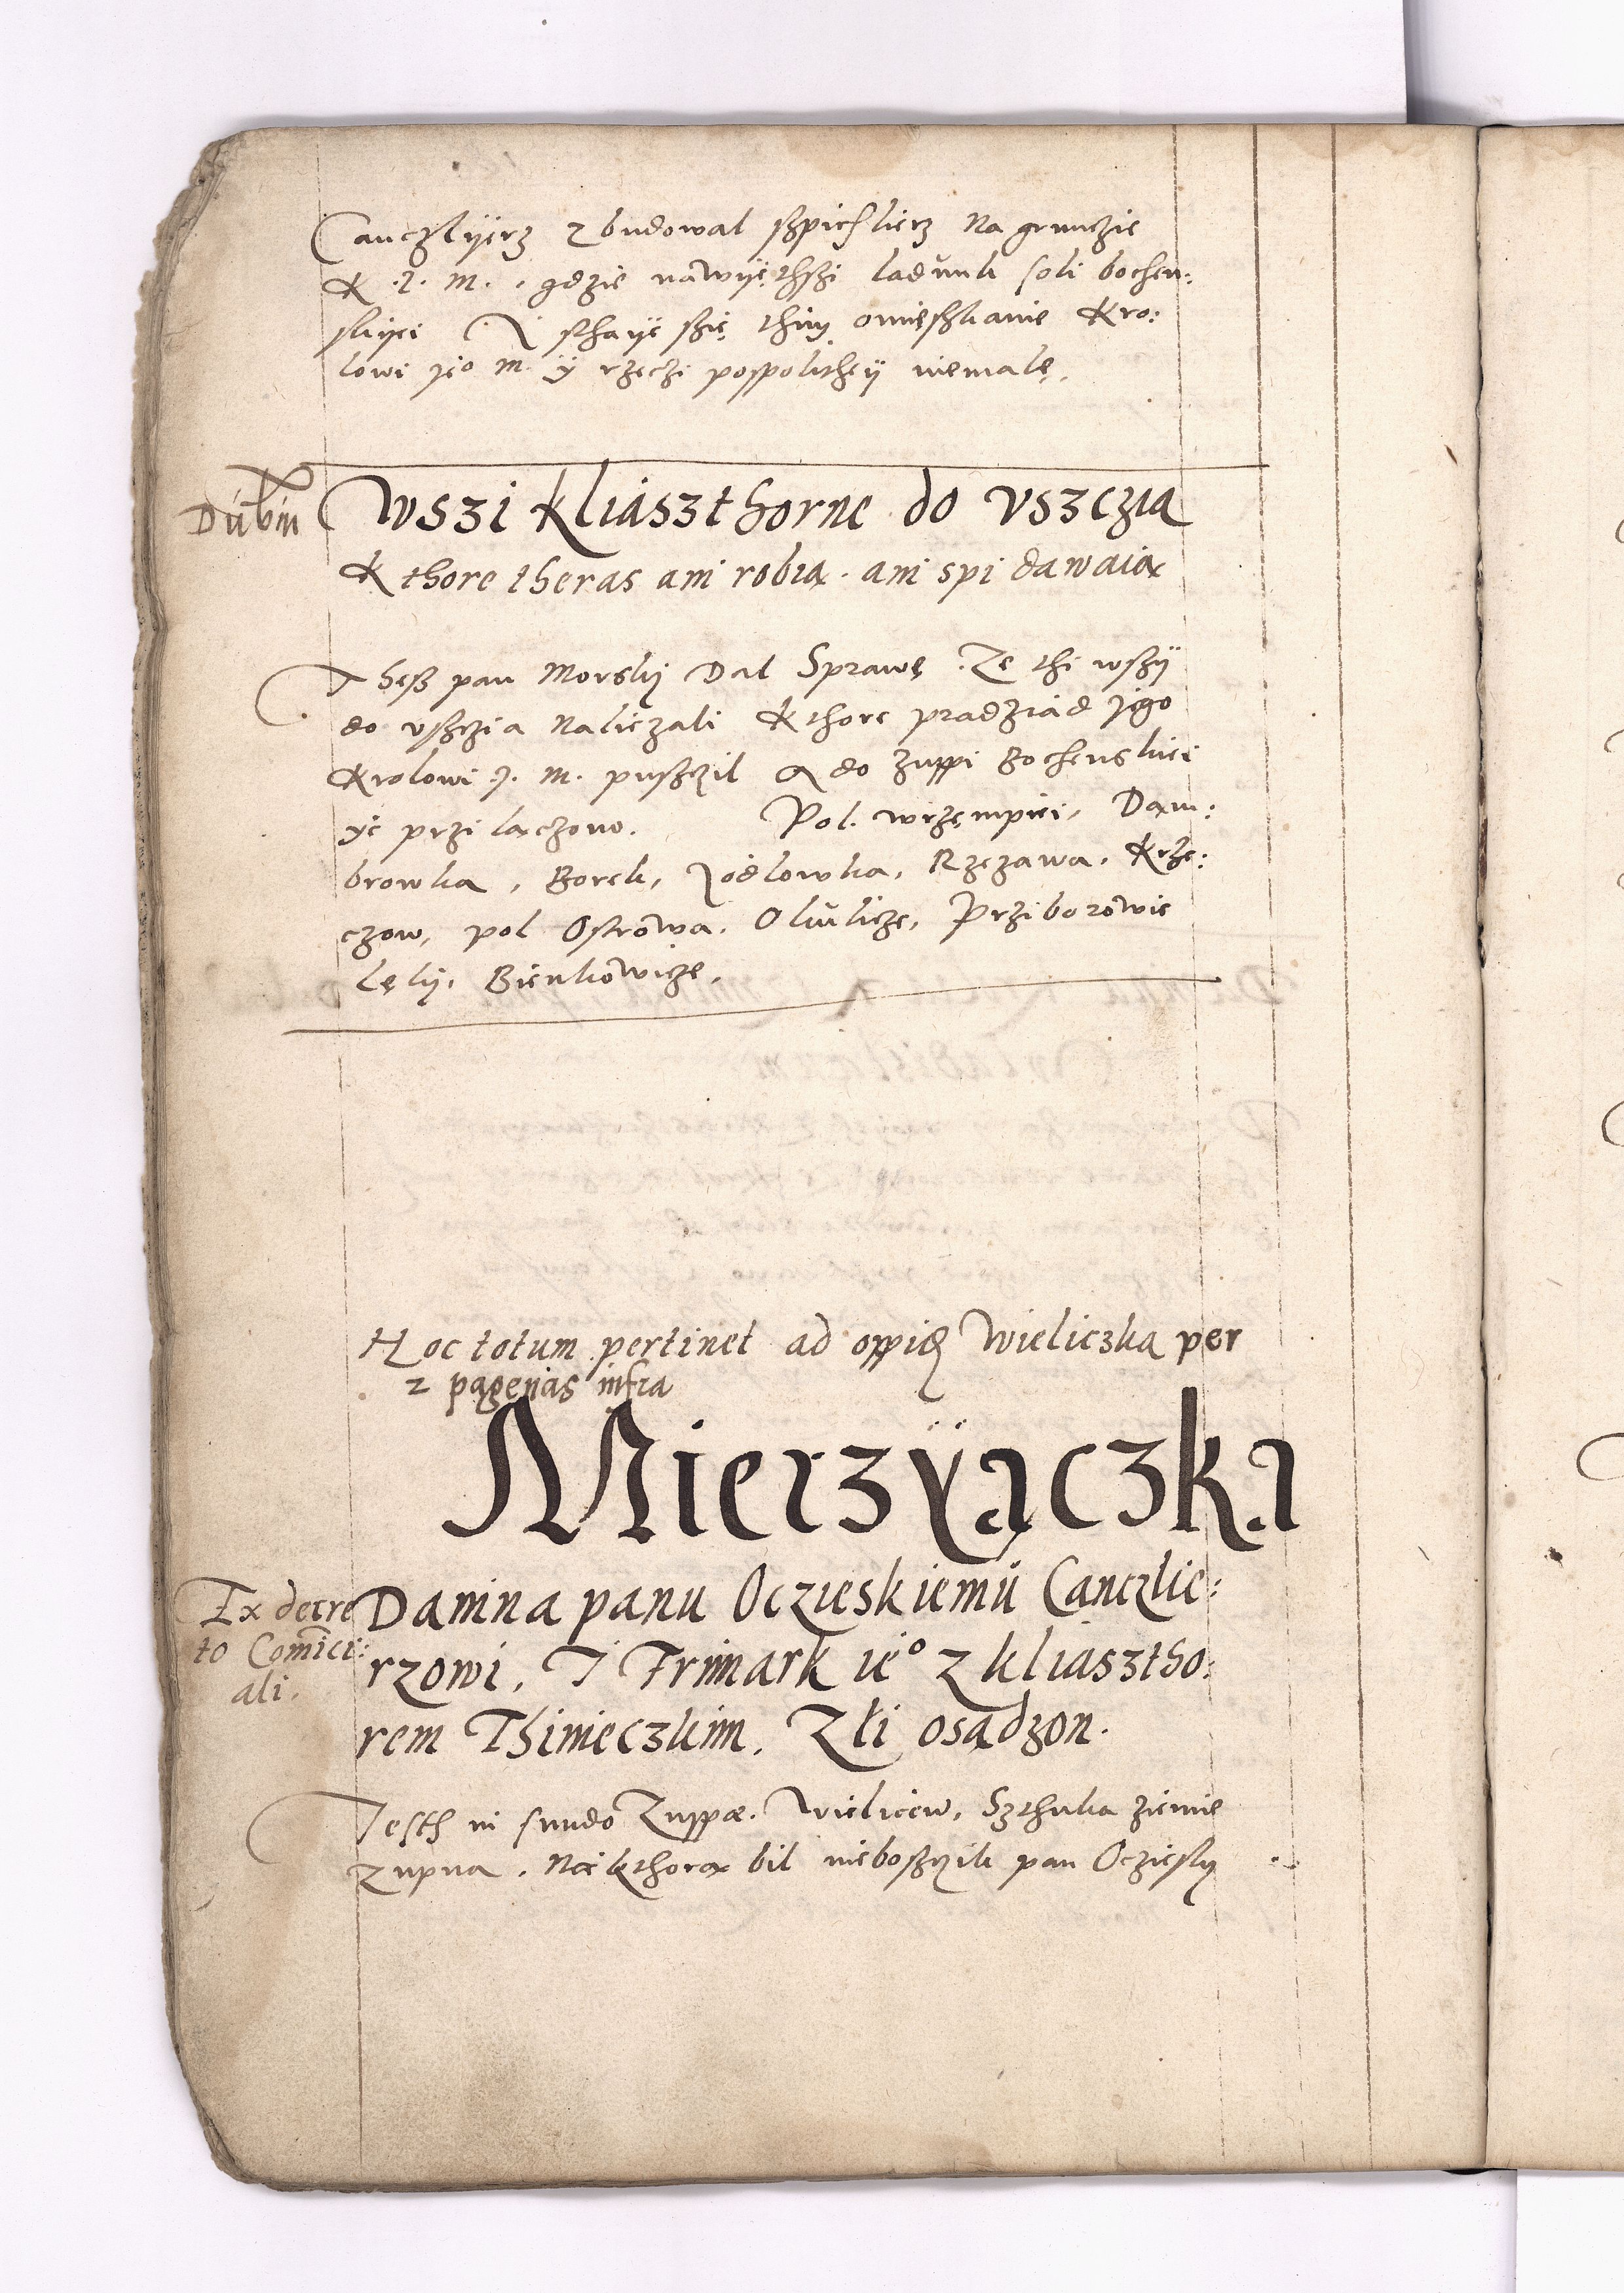 Canczlÿerz zbudowal sżpichlierz Na grunczie
K. J. M. gdzie nawÿęthszi ladunk soli bochen:
skÿei. J sthaÿe szię thim omięszkanie Kro:
lowi jeº M. ÿ rzeczi pospolitheÿ niemalę.
Dubiū
Wszi kliaszthorne do Vszczia
Kthore theras ani robia. ani spi dawaia
Thesz pan Morskÿ Dal Sprawę. Ze thi wszÿ
do vszczia Naliczali Kthore pradziad jego
Krolowi J. M. pusczil a do zuppi Bochenskiei
ÿe przilaczono. Pol. wrzęmpiei, Dam:
browka, Borek, Jodlowka, Rzęzawa, Krze:
czow, pol Ostrowa, Okulicze, Prziborowie
Lękÿ, Bienkowicze.
Hoc totum pertinet ad oppid Wieliczka per
2 pagenas infra
Mierzÿączka
Ex decre
to Comici:
ali.
Damna panu Oczieskiemu Canczlie:
rzowi, J Frimark ieº z kliasztho:
rem Thinieczkim. Zli osadzon.
Jesth in fundo Zuppæ. Wielicien, Szthuka ziemie
zupna, Na kthorą bil nieboszczik pan Oczieskÿ